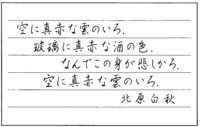 空に真赤な雲のいろ．
玻璃に真赤な酒の色．
なんでこの身が悲しかろ．
空に真赤な雲のいろ．
北原白秋